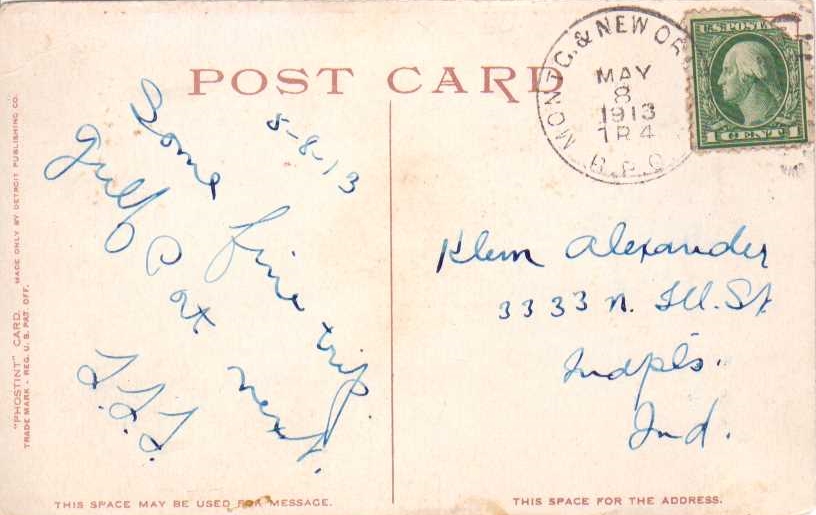 POST CARD
MONTG. & NEW OR
MAY
8
1913
TR4
R.P.O.
U.S. POSTA
1 CENT 1
5-8-13
Some fine trip.
Gulf at next.
Klem Alexander
3333 N. Ill. St
Indpls.
Ind.
THIS SPACE MAY BE USED FOR MESSAGE.
THIS SPACE FOR THE ADDRESS.
"PHOSTINT" CARD. MADE ONLY BY DETROIT PUBLISHING CO.
TRADE MARK - REG. U. S. PAT. OFF.